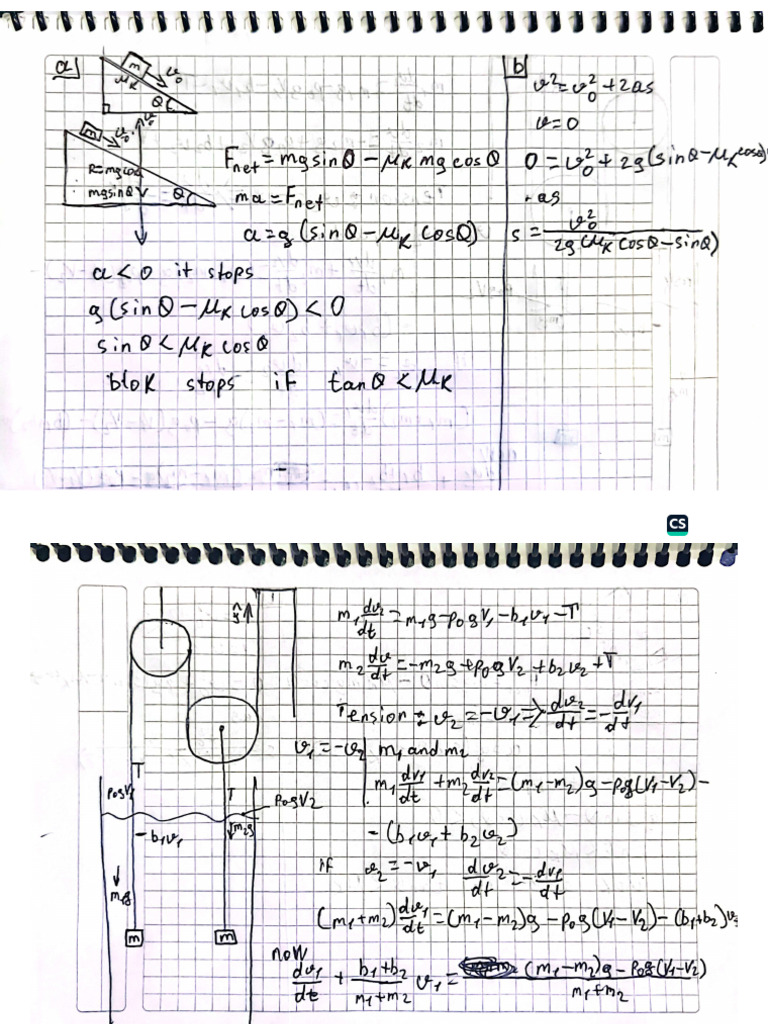 a
m
μk
v₀
θ
m
v₀
v₀
R=mgcosθ
mgsinθ
θ
F_net = mgsinθ − μk mg cosθ
ma = F_net
a = g (sinθ − μk cosθ)
a < 0 it stops
g (sinθ − μk cosθ) < 0
sinθ < μk cosθ
blok stops if tanθ < μk
b
v² = v₀² + 2as
v = 0
0 = v₀² + 2g(sinθ − μk cosθ)
· as
s = v₀² / 2g (μk cosθ − sinθ)
CS
ŷ ↑
T
ρ₀gV₁
T
ρ₀gV₂
m₂g
− b₁v₁
m₁g
m
m
m₁ dv₂/dt = m₁g − ρ₀gV₁ − b₁v₁ − T
m₂ dv/dt = −m₂g + ρ₀gV₂ + b₂v₂ + T
Tension : v₂ = −v₁ ⇒ dv₂/dt = − dv₁/dt
v₁ = −v₂ | m₁ and m₂
m₁ dv₁/dt + m₂ dv₂/dt = (m₁ − m₂)g − ρ₀g(V₁ − V₂) −
− (b₁v₁ + b₂v₂)
if v₂ = −v₁ dv₂/dt = − dv₁/dt
(m₁+m₂) dv₁/dt = (m₁ − m₂)g − ρ₀g(V₁ − V₂) − (b₁+b₂)v₁
now
dv₁/dt + b₁+b₂/m₁+m₂ v₁ = (m₁−m₂)g − ρ₀g(V₁−V₂) / m₁+m₂